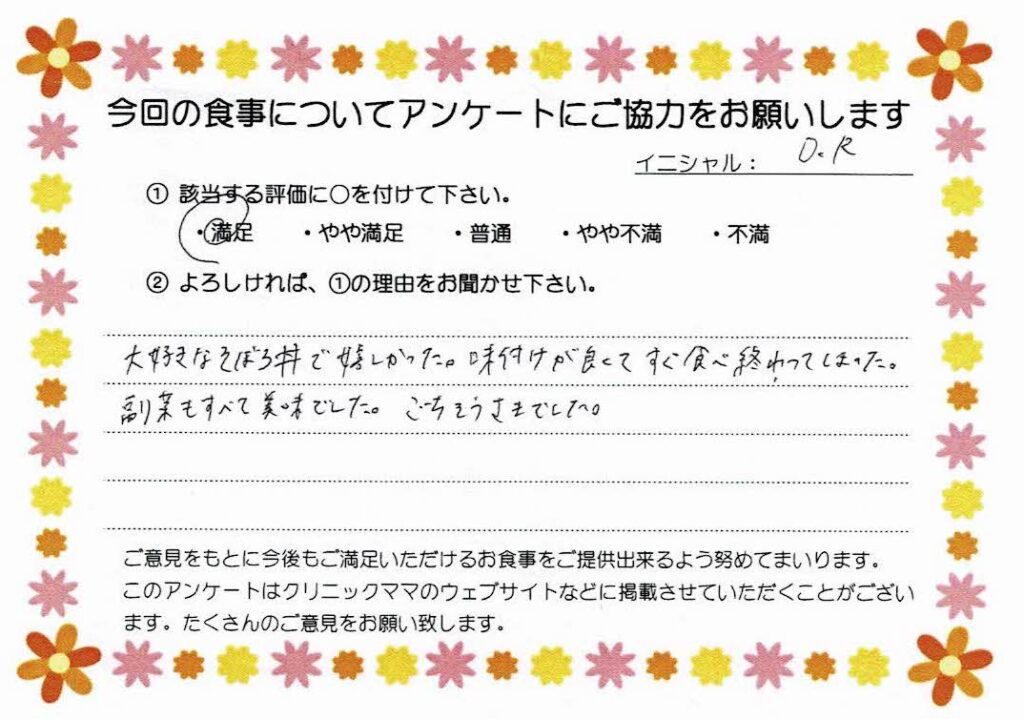 今回の食事についてアンケートにご協力をお願いします
イニシャル： O.R
① 該当する評価に〇を付けて下さい。
・満足 ・やや満足 ・普通 ・やや不満 ・不満
② よろしければ、①の理由をお聞かせ下さい。
大好きなそぼろ丼で嬉しかった。味付けが良くてすぐ食べ終わってしまった。
副菜もすべて美味でした。ごちそうさまでした。
ご意見をもとに今後もご満足いただけるお食事をご提供出来るよう努めてまいります。
このアンケートはクリニックママのウェブサイトなどに掲載させていただくことがござい
ます。たくさんのご意見をお願い致します。